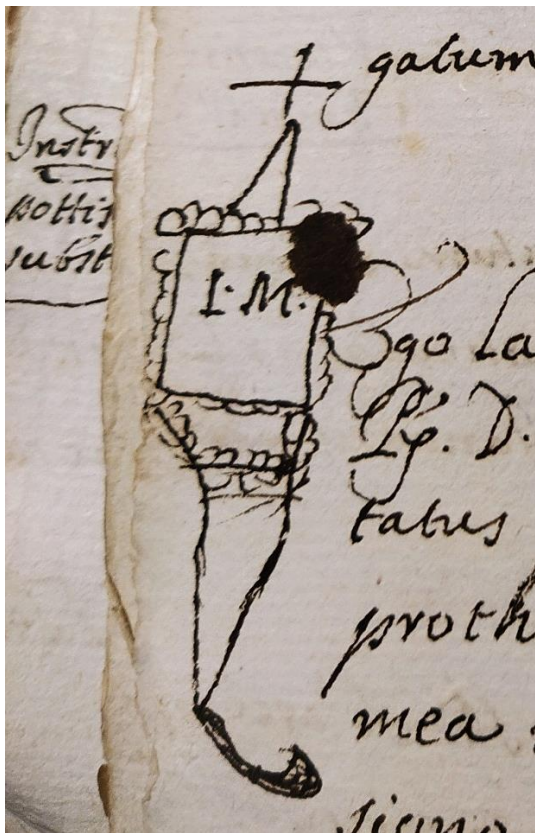 Instr
pottis
subst
gatum
I. M.
Ego la
Pp. D.
tatus
proth
mea
signo